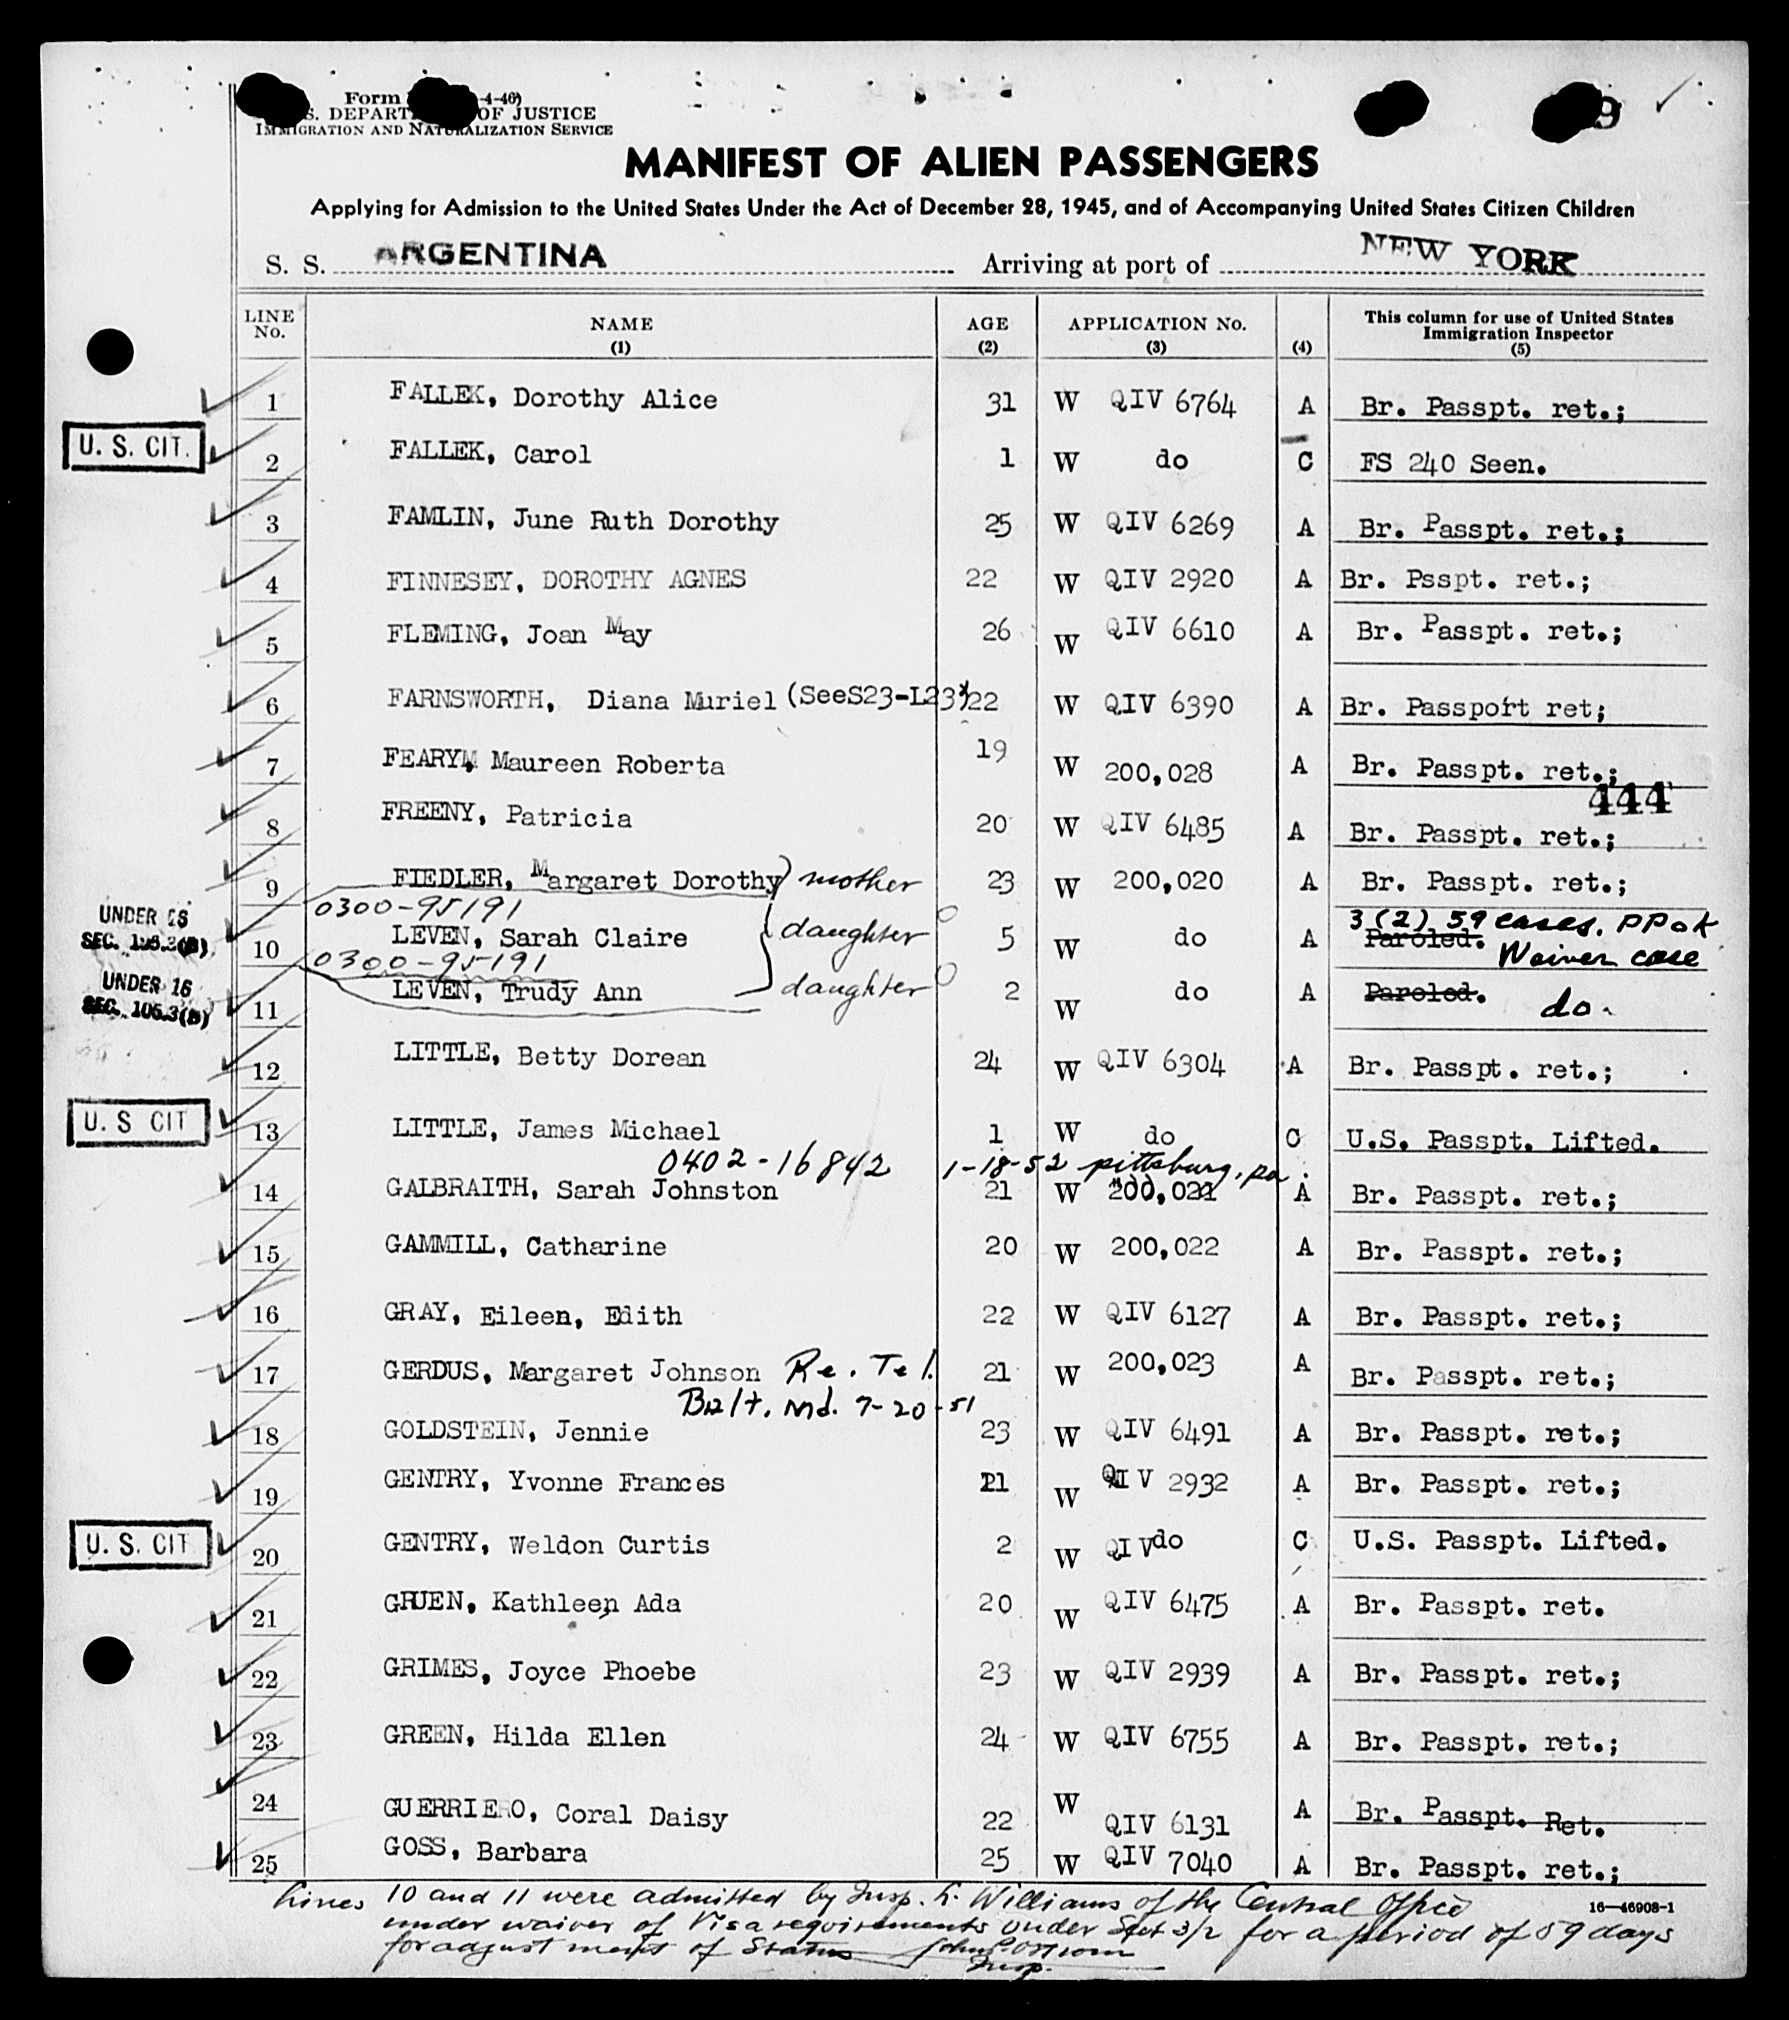 Form -4-46)
S. DEPART OF JUSTICE
IMMIGRATION AND NATURALIZATION SERVICE
9
MANIFEST OF ALIEN PASSENGERS
Applying for Admission to the United States Under the Act of December 28, 1945, and of Accompanying United States Citizen Children
S. S. ARGENTINA Arriving at port of NEW YORK
LINE No. NAME (1) AGE (2) APPLICATION No. (3) (4) This column for use of United States Immigration Inspector (5)
1 FALLEK, Dorothy Alice 31 W QIV 6764 A Br. Passpt. ret.;
U. S. CIT. 2 FALLEK, Carol 1 W do C FS 240 Seen.
3 FAMLIN, June Ruth Dorothy 25 W QIV 6269 A Br. Passpt. ret.;
4 FINNESEY, DOROTHY AGNES 22 W QIV 2920 A Br. Psspt. ret.;
5 FLEMING, Joan May 26 W QIV 6610 A Br. Passpt. ret.;
6 FARNSWORTH, Diana Muriel (SeeS23-L23) 22 W QIV 6390 A Br. Passport ret;
7 FEARY, Maureen Roberta 19 W 200,028 A Br. Passpt. ret.;
444
8 FREENY, Patricia 20 W QIV 6485 A Br. Passpt. ret.;
9 FIEDLER, Margaret Dorothy mother 23 W 200,020 A Br. Passpt. ret.;
UNDER 16 SEC. 105.3(B) 0300-95191 3 (2) 59 cases. PP ok
10 LEVEN, Sarah Claire daughter 5 W do A Paroled. Waiver case
UNDER 16 SEC. 105.3(B) 0300-95191
11 LEVEN, Trudy Ann daughter 2 W do A Paroled. do.
12 LITTLE, Betty Dorean 24 W QIV 6304 A Br. Passpt. ret.;
U. S CIT 13 LITTLE, James Michael 1 W do C U.S. Passpt. Lifted.
0402-16842 1-18-52 pittsburg, pa.
14 GALBRAITH, Sarah Johnston 21 W 200,021 A Br. Passpt. ret.;
15 GAMMILL, Catharine 20 W 200,022 A Br. Passpt. ret.;
16 GRAY, Eileen, Edith 22 W QIV 6127 A Br. Passpt. ret.;
17 GERDUS, Margaret Johnson Re. Tel. 21 W 200,023 A Br. Passpt. ret.;
Balt. Md. 7-20-51
18 GOLDSTEIN, Jennie 23 W QIV 6491 A Br. Passpt. ret.;
19 GENTRY, Yvonne Frances 21 W QIV 2932 A Br. Passpt. ret.;
U. S. CIT 20 GENTRY, Weldon Curtis 2 W QIV do C U.S. Passpt. Lifted.
21 GRUEN, Kathleen Ada 20 W QIV 6475 A Br. Passpt. ret.
22 GRIMES, Joyce Phoebe 23 W QIV 2939 A Br. Passpt. ret.;
23 GREEN, Hilda Ellen 24 W QIV 6755 A Br. Passpt. ret.;
24 GUERRIERO, Coral Daisy 22 W QIV 6131 A Br. Passpt. Ret.
25 GOSS, Barbara 25 W QIV 7040 A Br. Passpt. ret.;
Lines 10 and 11 were admitted by Insp. L. Williams of the Central Office
16—46908-1
under waiver of Visa requirements under Sect 3/2 for a period of 59 days
for adjustments of Status John Ostrom
Insp.